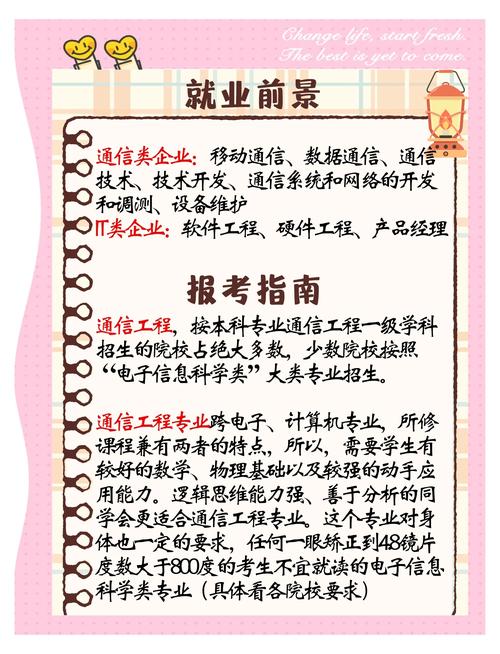 Change life, start fresh.
The best is yet to come.
就业前景
通信类企业：移动通信、数据通信、通信
技术、技术开发、通信系统和网络的开发
和调测、设备维护
IT类企业：软件工程、硬件工程、产品经理
报考指南
通信工程，按本科专业通信工程一级学科
招生的院校占绝大多数，少数院校按照
“电子信息科学类”大类专业招生。
通信工程专业跨电子、计算机专业，所修
课程兼有两者的特点，所以，需要学生有
较好的数学、物理基础以及较强的动手应
用能力。逻辑思维能力强、善于分析的同
学会更适合通信工程专业。这个专业对身
体也一定的要求，任何一眼矫正到4.8镜片
度数大于800度的考生不宜就读的电子信息
科学类专业（具体看各院校要求）